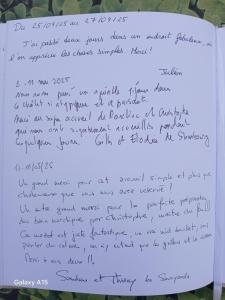 Du 25/04/25 au 27/04/25
J'ai passé deux jours dans un endroit fabuleux, où
l'on apprécie les choses simples. Merci!
Julien
11 mai 2025
Nous avons passé un agréable séjour dans
ce chalet si atypique et apaisant
Merci au super accueil de et Christophe
qui nous ont si gentiment accueillis pendant
ces quelques jours. et Elodie de Strasbourg
11/05/25
Un grand merci pour cet accueil simple et plus que
chaleureux que vous nous avez réservé!
Un autre grand merci pour la parfaite préparation
du bain nordique par Christophe, maître du
Ce mazot est juste fantastique, un vrai nid douillet, sans
parler du calme, on n'y entend que les grillons et la
Merci à vous deux!!
Sandrine et Thierry les Savoyards
Galaxy A15